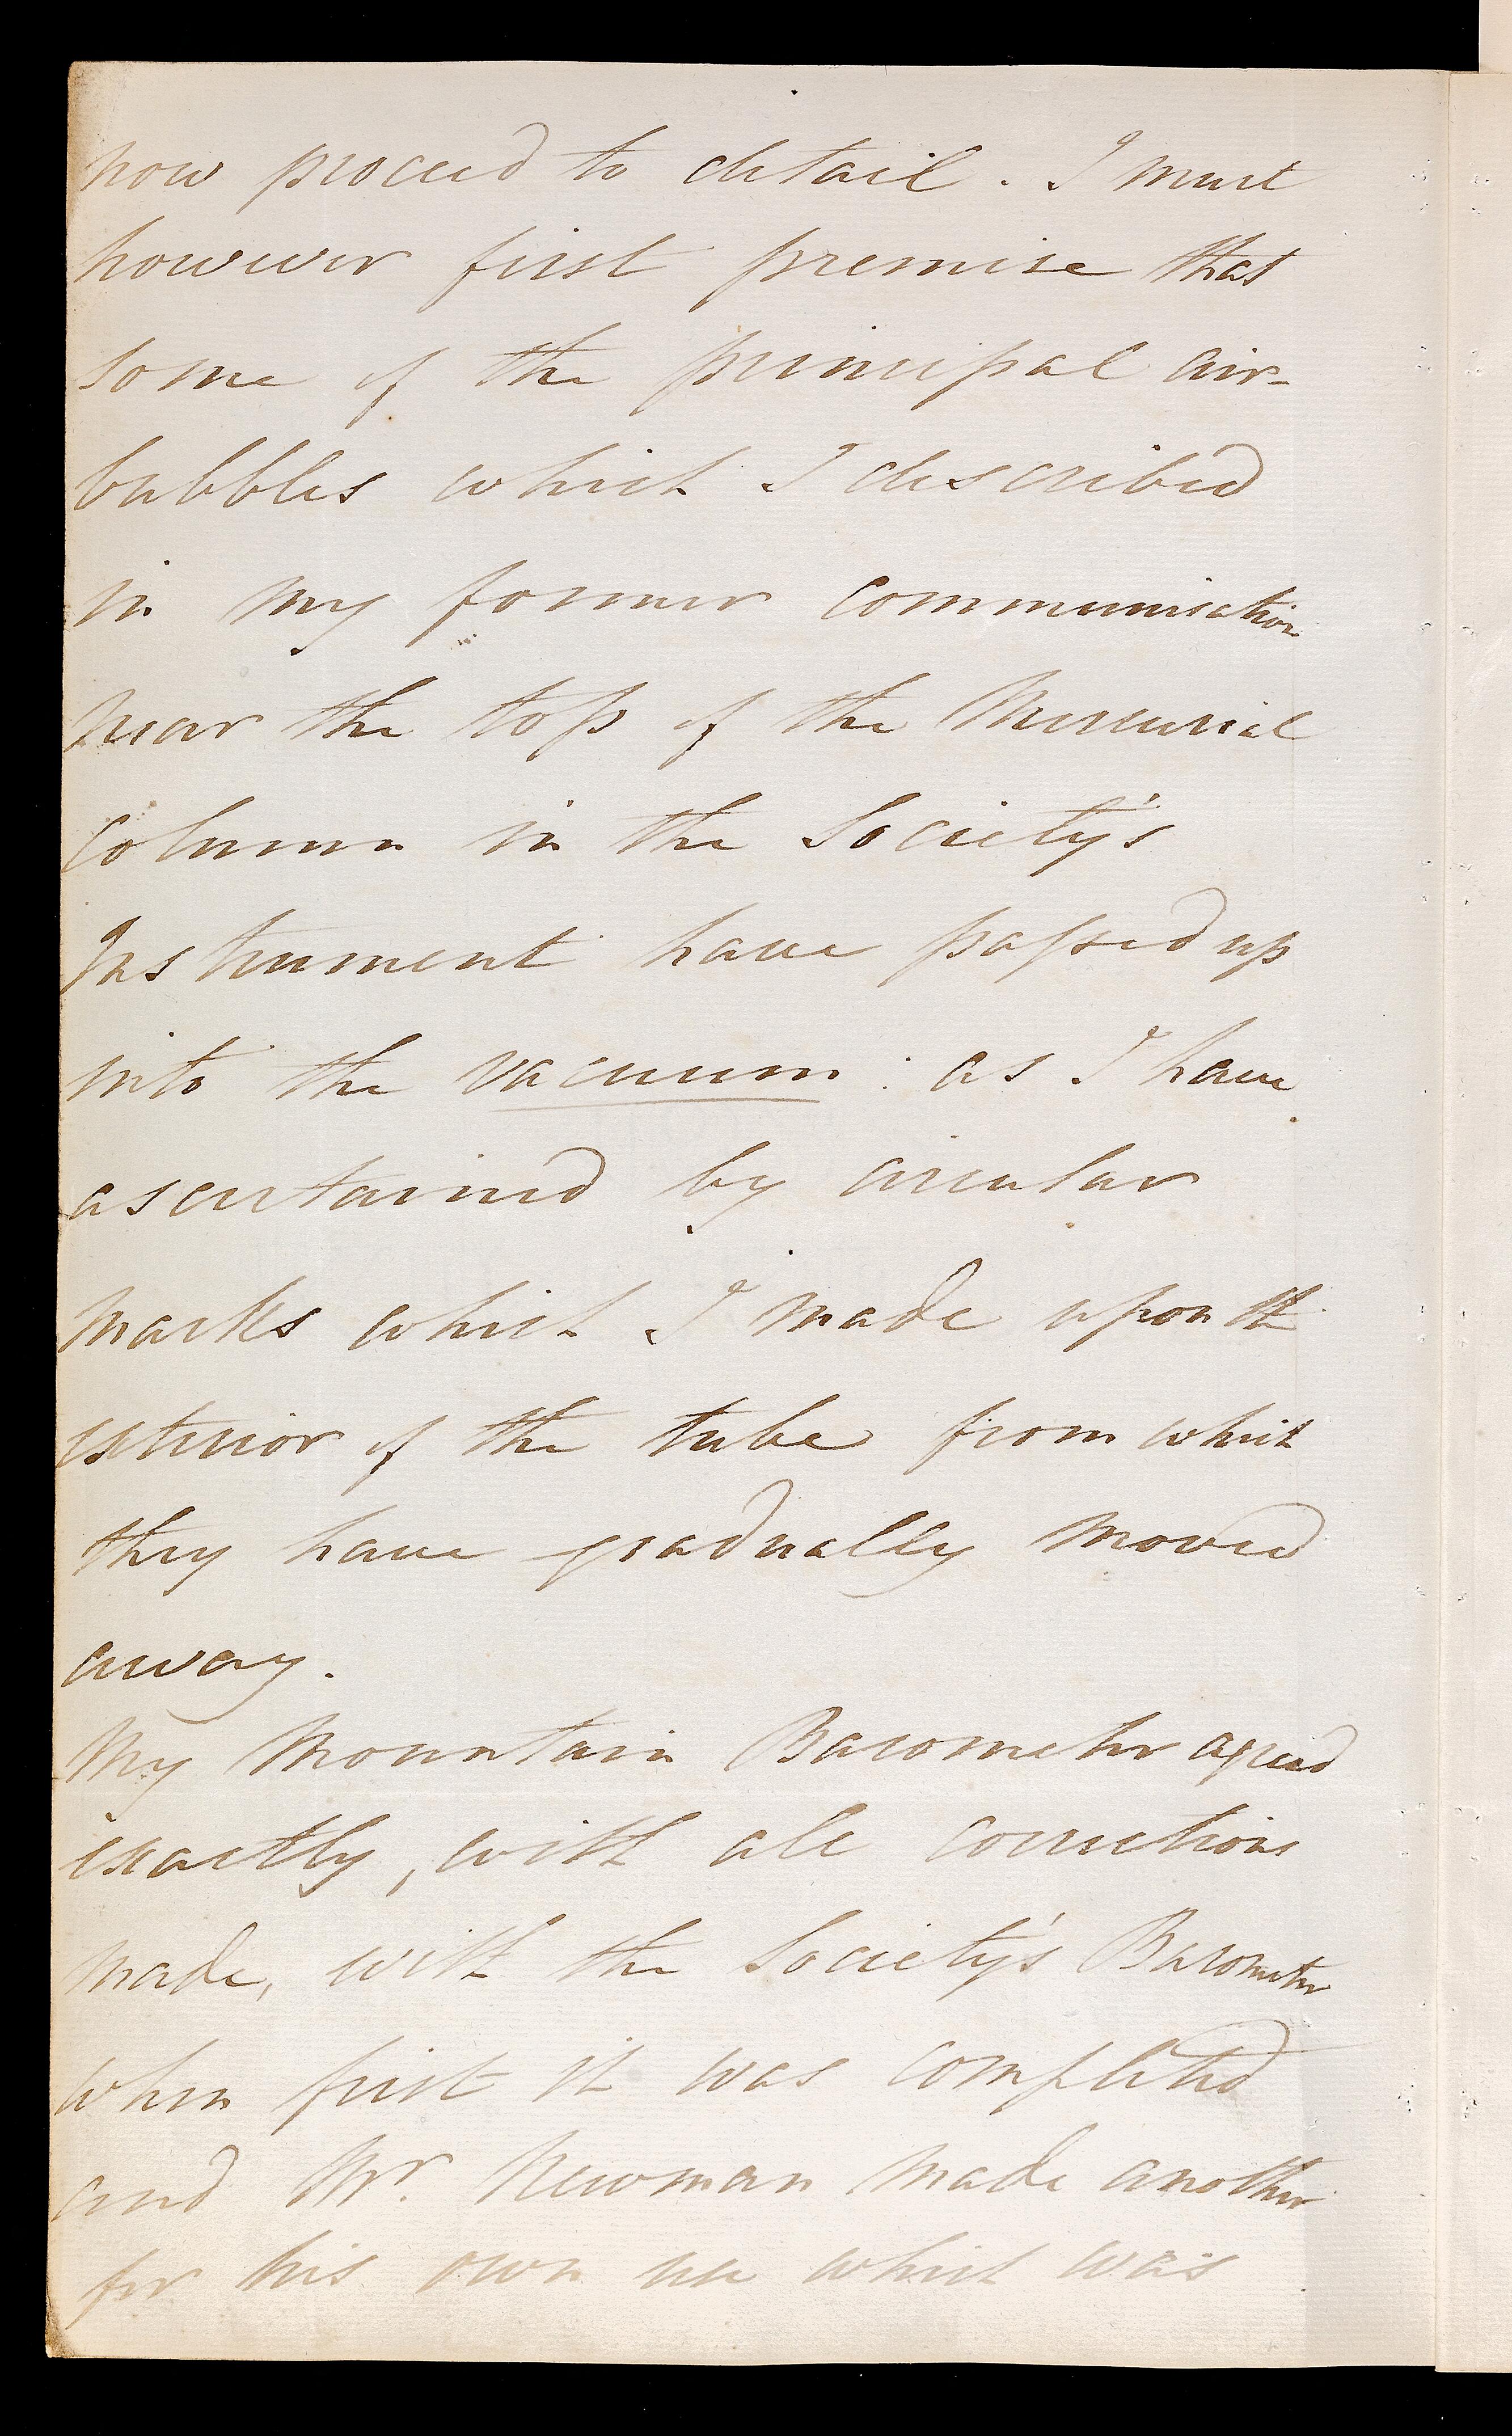 now proceed to detail. I must
however first premise that
some of the principal air-
bubbles which I described
in my former communication
near the top of the Mercurial
column in the Society's
Instrument have passed up
into the vacuum: as I have
ascertained by circular
marks which I made upon the
exterior of the tube from which
they have gradually moved
away.
My Mountain Barometer agreed
exactly, with all corrections
made, with the Society's Barometer
when first it was completed
and Mr. Newman made another
for his own use which was